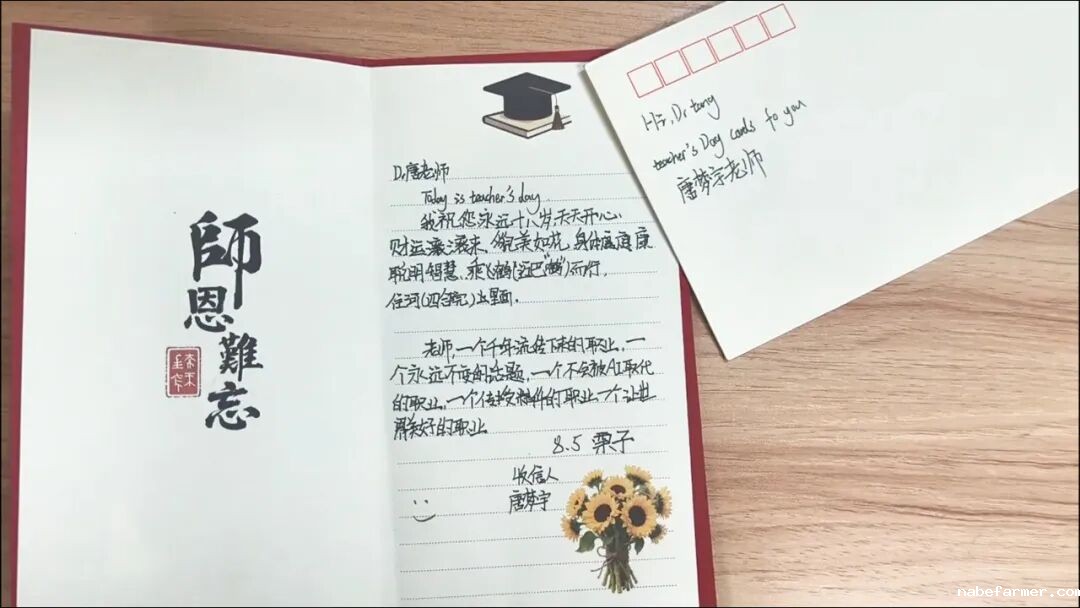 師
恩
難
忘
Dr唐老师
Today is teacher's day.
我祝您永远十八岁,天天开心、
财运滚滚来、貌美如花、身体健康
聪明智慧、乘飞鹤(近巴“鹤”)而行,
任河(四合院)出里面。
老师,一个千年流传下来的职业,一
个永远不变的话题,一个不会被AI取代
的职业,一个传授精神的职业,一个让世
界美好的职业
8.5 栗子
收信人
唐梦宇
Hi, Dr tang
teacher's Day cards to you
唐梦宗老师
nabefarmer.com